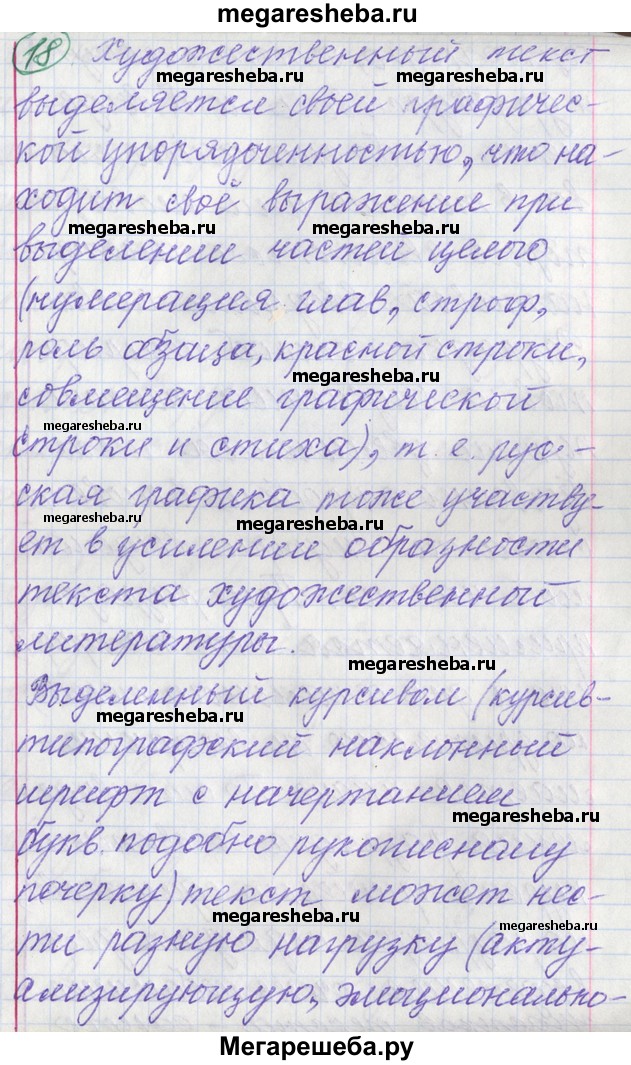 megaresheba.ru
18 Художественный текст
megaresheba.ru megaresheba.ru
выделяется своей графичес-
кой упорядоченностью, что на-
ходит своё выражение при
megaresheba.ru megaresheba.ru
выделении частей целого
(нумерация глав, строф,
роль абзаца, красной строки,
megaresheba.ru
совмещение графической
megaresheba.ru
строки и стиха), т. е. рус-
ская графика тоже участву-
megaresheba.ru megaresheba.ru
ет в усилении образности
текста художественный
литературы.
megaresheba.ru
Выделенный курсивом (курсив-
megaresheba.ru
типографский наклонный
шрифт с начертанием
букв подобно рукописному
почерку) текст может нес-
megaresheba.ru megaresheba.ru
ти разную нагрузку (акту-
ализирующую, эмоционально-
Мегарешеба.ру